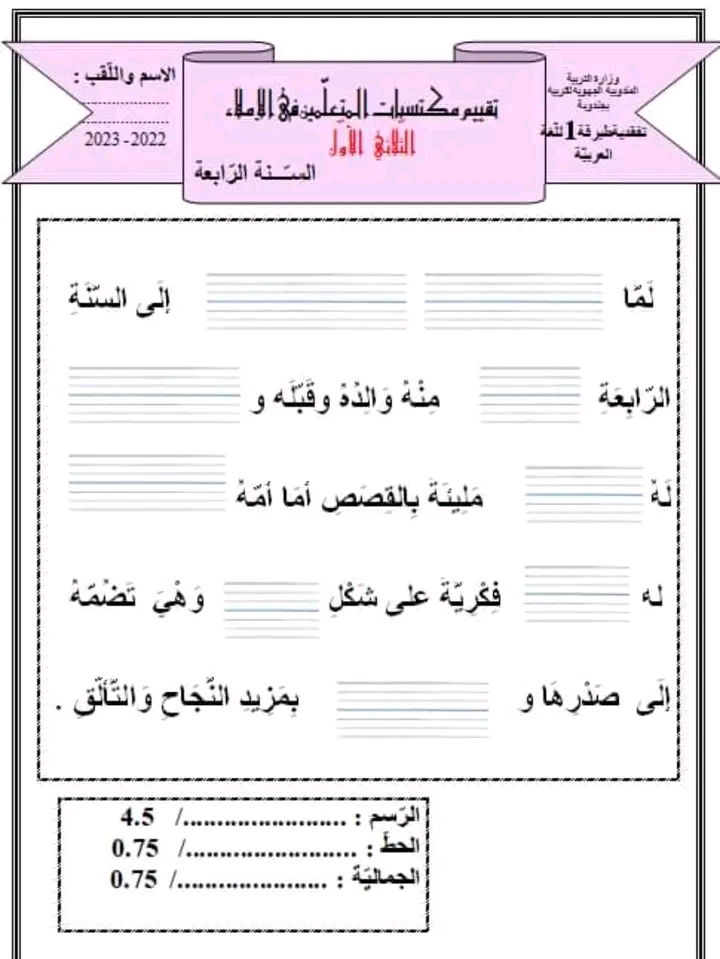 وزارة التربية
المندوبية الجهوية للتربية
بجندوبة
تفقدية طبرقة 1 للّغة
العربيّة
تقييم مكتسبات المتعلّمين في الإملاء
الثلاثي الأول
السّنة الرّابعة
الاسم واللّقب :
2022-2023
لَمّا إلَى السّنَةِ
الرّابِعَةِ مِنْهُ وَالِدُهُ وقَبّلَه و
لَهُ مَلِيئَةً بِالقِصَصِ أمَا أمّهُ
له فِكْرِيّةً على شَكْلِ وَهْيَ تَضُمّهُ
إلَى صَدْرِهَا و بِمَزِيدِ النَّجَاحِ وَالتَّألّقِ .
الرّسم : ......................../ 4.5
الخطّ : ........................./ 0.75
الجماليّة : ......................./ 0.75